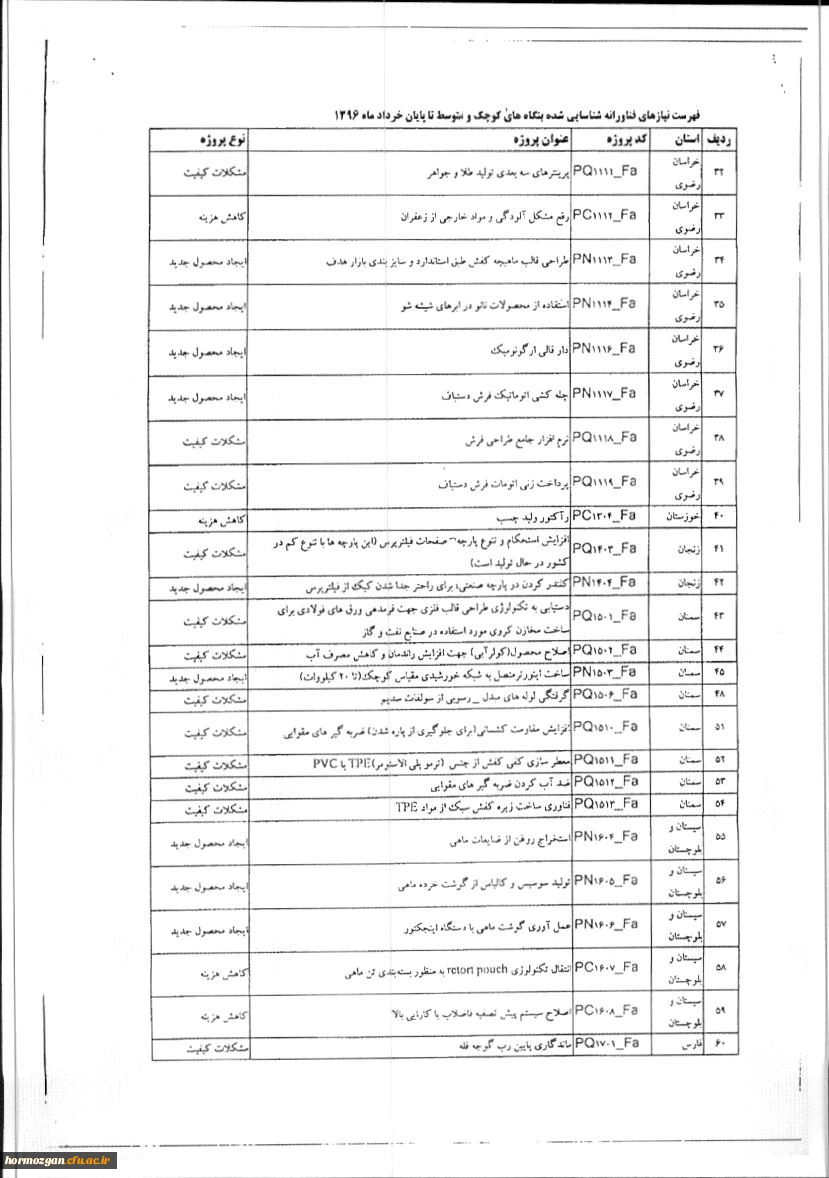 فهرست نیازهای فناورانه شناسایی شده بنگاه های کوچک و متوسط تا پایان خرداد ماه ۱۳۹۶
ردیف استان کد پروژه عنوان پروژه نوع پروژه
۳۲ خراسان رضوی PQ۱۱۱۱_Fa پرینترهای سه بعدی تولید طلا و جواهر مشکلات کیفیت
۳۳ خراسان رضوی PC۱۱۱۲_Fa رفع مشکل آلودگی و مواد خارجی از زعفران کاهش هزینه
۳۴ خراسان رضوی PN۱۱۱۳_Fa طراحی قالب ماهیچه کفش طبق استاندارد و سایز بندی بازار هدف ایجاد محصول جدید
۳۵ خراسان رضوی PN۱۱۱۴_Fa استفاده از محصولات نانو در ابرهای شیشه شو ایجاد محصول جدید
۳۶ خراسان رضوی PN۱۱۱۶_Fa دار قالی ارگونومیک ایجاد محصول جدید
۳۷ خراسان رضوی PN۱۱۱۷_Fa چله کشی اتوماتیک فرش دستباف ایجاد محصول جدید
۳۸ خراسان رضوی PQ۱۱۱۸_Fa نرم افزار جامع طراحی فرش مشکلات کیفیت
۳۹ خراسان رضوی PQ۱۱۱۹_Fa پرداخت زنی اتومات فرش دستباف مشکلات کیفیت
۴۰ خوزستان PC۱۳۰۴_Fa رآکتور ولید چسب کاهش هزینه
۴۱ زنجان PQ۱۴۰۳_Fa افزایش استحکام و تنوع پارچه- صفحات فیلترپرس (این پارچه ها با تنوع کم در
کشور در حال تولید است) مشکلات کیفیت
۴۲ زنجان PN۱۴۰۴_Fa کلندر کردن در پارچه صنعتی، برای راحتر جدا شدن کیک از فیلترپرس ایجاد محصول جدید
۴۳ سمنان PQ۱۵۰۱_Fa دستیابی به تکنولوژی طراحی قالب فلزی جهت فرمدهی ورق های فولادی برای
ساخت مخازن کروی مورد استفاده در صنایع نفت و گاز مشکلات کیفیت
۴۴ سمنان PQ۱۵۰۲_Fa اصلاح محصول(کولرآبی) جهت افزایش راندمان و کاهش مصرف آب مشکلات کیفیت
۴۵ سمنان PN۱۵۰۳_Fa ساخت اینورترمتصل به شبکه خورشیدی مقیاس کوچک(تا ۲۰ کیلووات) ایجاد محصول جدید
۴۸ سمنان PQ۱۵۰۶_Fa گرفتگی لوله های مبدل _ رسوبی از سولفات سدیم مشکلات کیفیت
۵۱ سمنان PQ۱۵۱۰_Fa افزایش مقاومت کشسانی(برای جلوگیری از پاره شدن) ضربه گیر های مقوایی مشکلات کیفیت
۵۲ سمنان PQ۱۵۱۱_Fa معطر سازی کفی کفش از جنس (ترمو پلی الاستومر)TPE یا PVC مشکلات کیفیت
۵۳ سمنان PQ۱۵۱۲_Fa ضد آب کردن ضربه گیر های مقوایی مشکلات کیفیت
۵۴ سمنان PQ۱۵۱۳_Fa فناوری ساخت زیره کفش سبک از مواد TPE مشکلات کیفیت
۵۵ سیستان و بلوچستان PN۱۶۰۴_Fa استخراج روغن از ضایعات ماهی ایجاد محصول جدید
۵۶ سیستان و بلوچستان PN۱۶۰۵_Fa تولید سوسیس و کالباس از گوشت خرده ماهی ایجاد محصول جدید
۵۷ سیستان و بلوچستان PN۱۶۰۶_Fa عمل آوری گوشت ماهی با دستگاه اینجکتور ایجاد محصول جدید
۵۸ سیستان و بلوچستان PC۱۶۰۷_Fa انتقال تکنولوژی retort pouch به منظور بسته‌بندی تن ماهی کاهش هزینه
۵۹ سیستان و بلوچستان PC۱۶۰۸_Fa اصلاح سیستم پیش تصفیه فاضلاب با کارایی بالا کاهش هزینه
۶۰ فارس PQ۱۷۰۱_Fa ماندگاری پایین رب گوجه فله مشکلات کیفیت
hormozgan.cfu.ac.ir